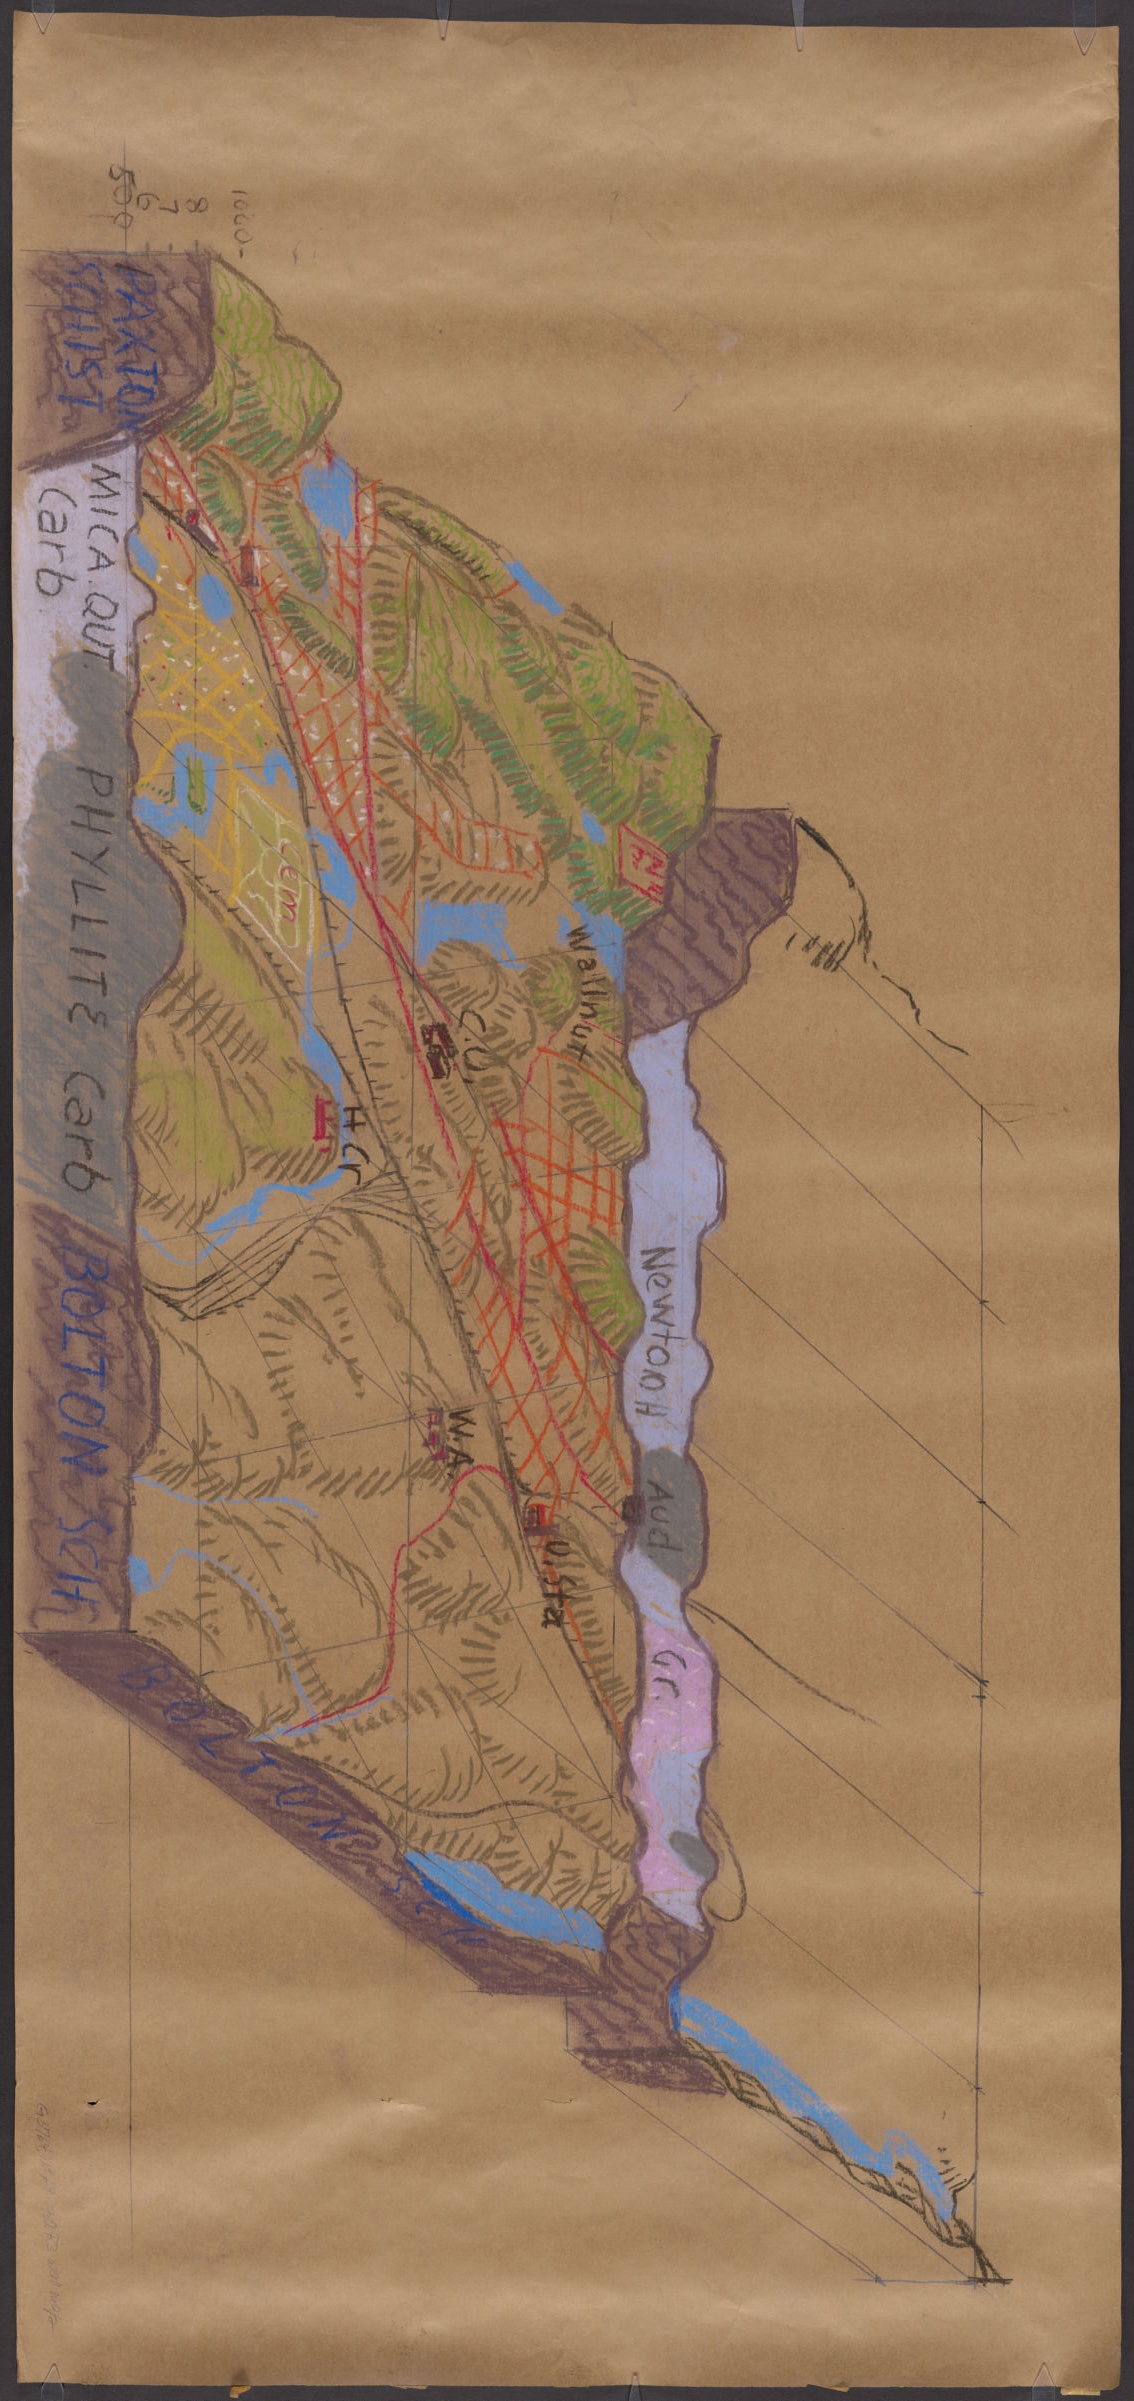 1000
8
7
6
500
PAXTON
SCHIST
MICA. QUT
Carb
PHYLLITE Carb
BOLTON SCH
BOLTON SCH
Cem
H.Cr
C.U.
Walnut
W.A.
Vista
Newton H
Aud
Gr.